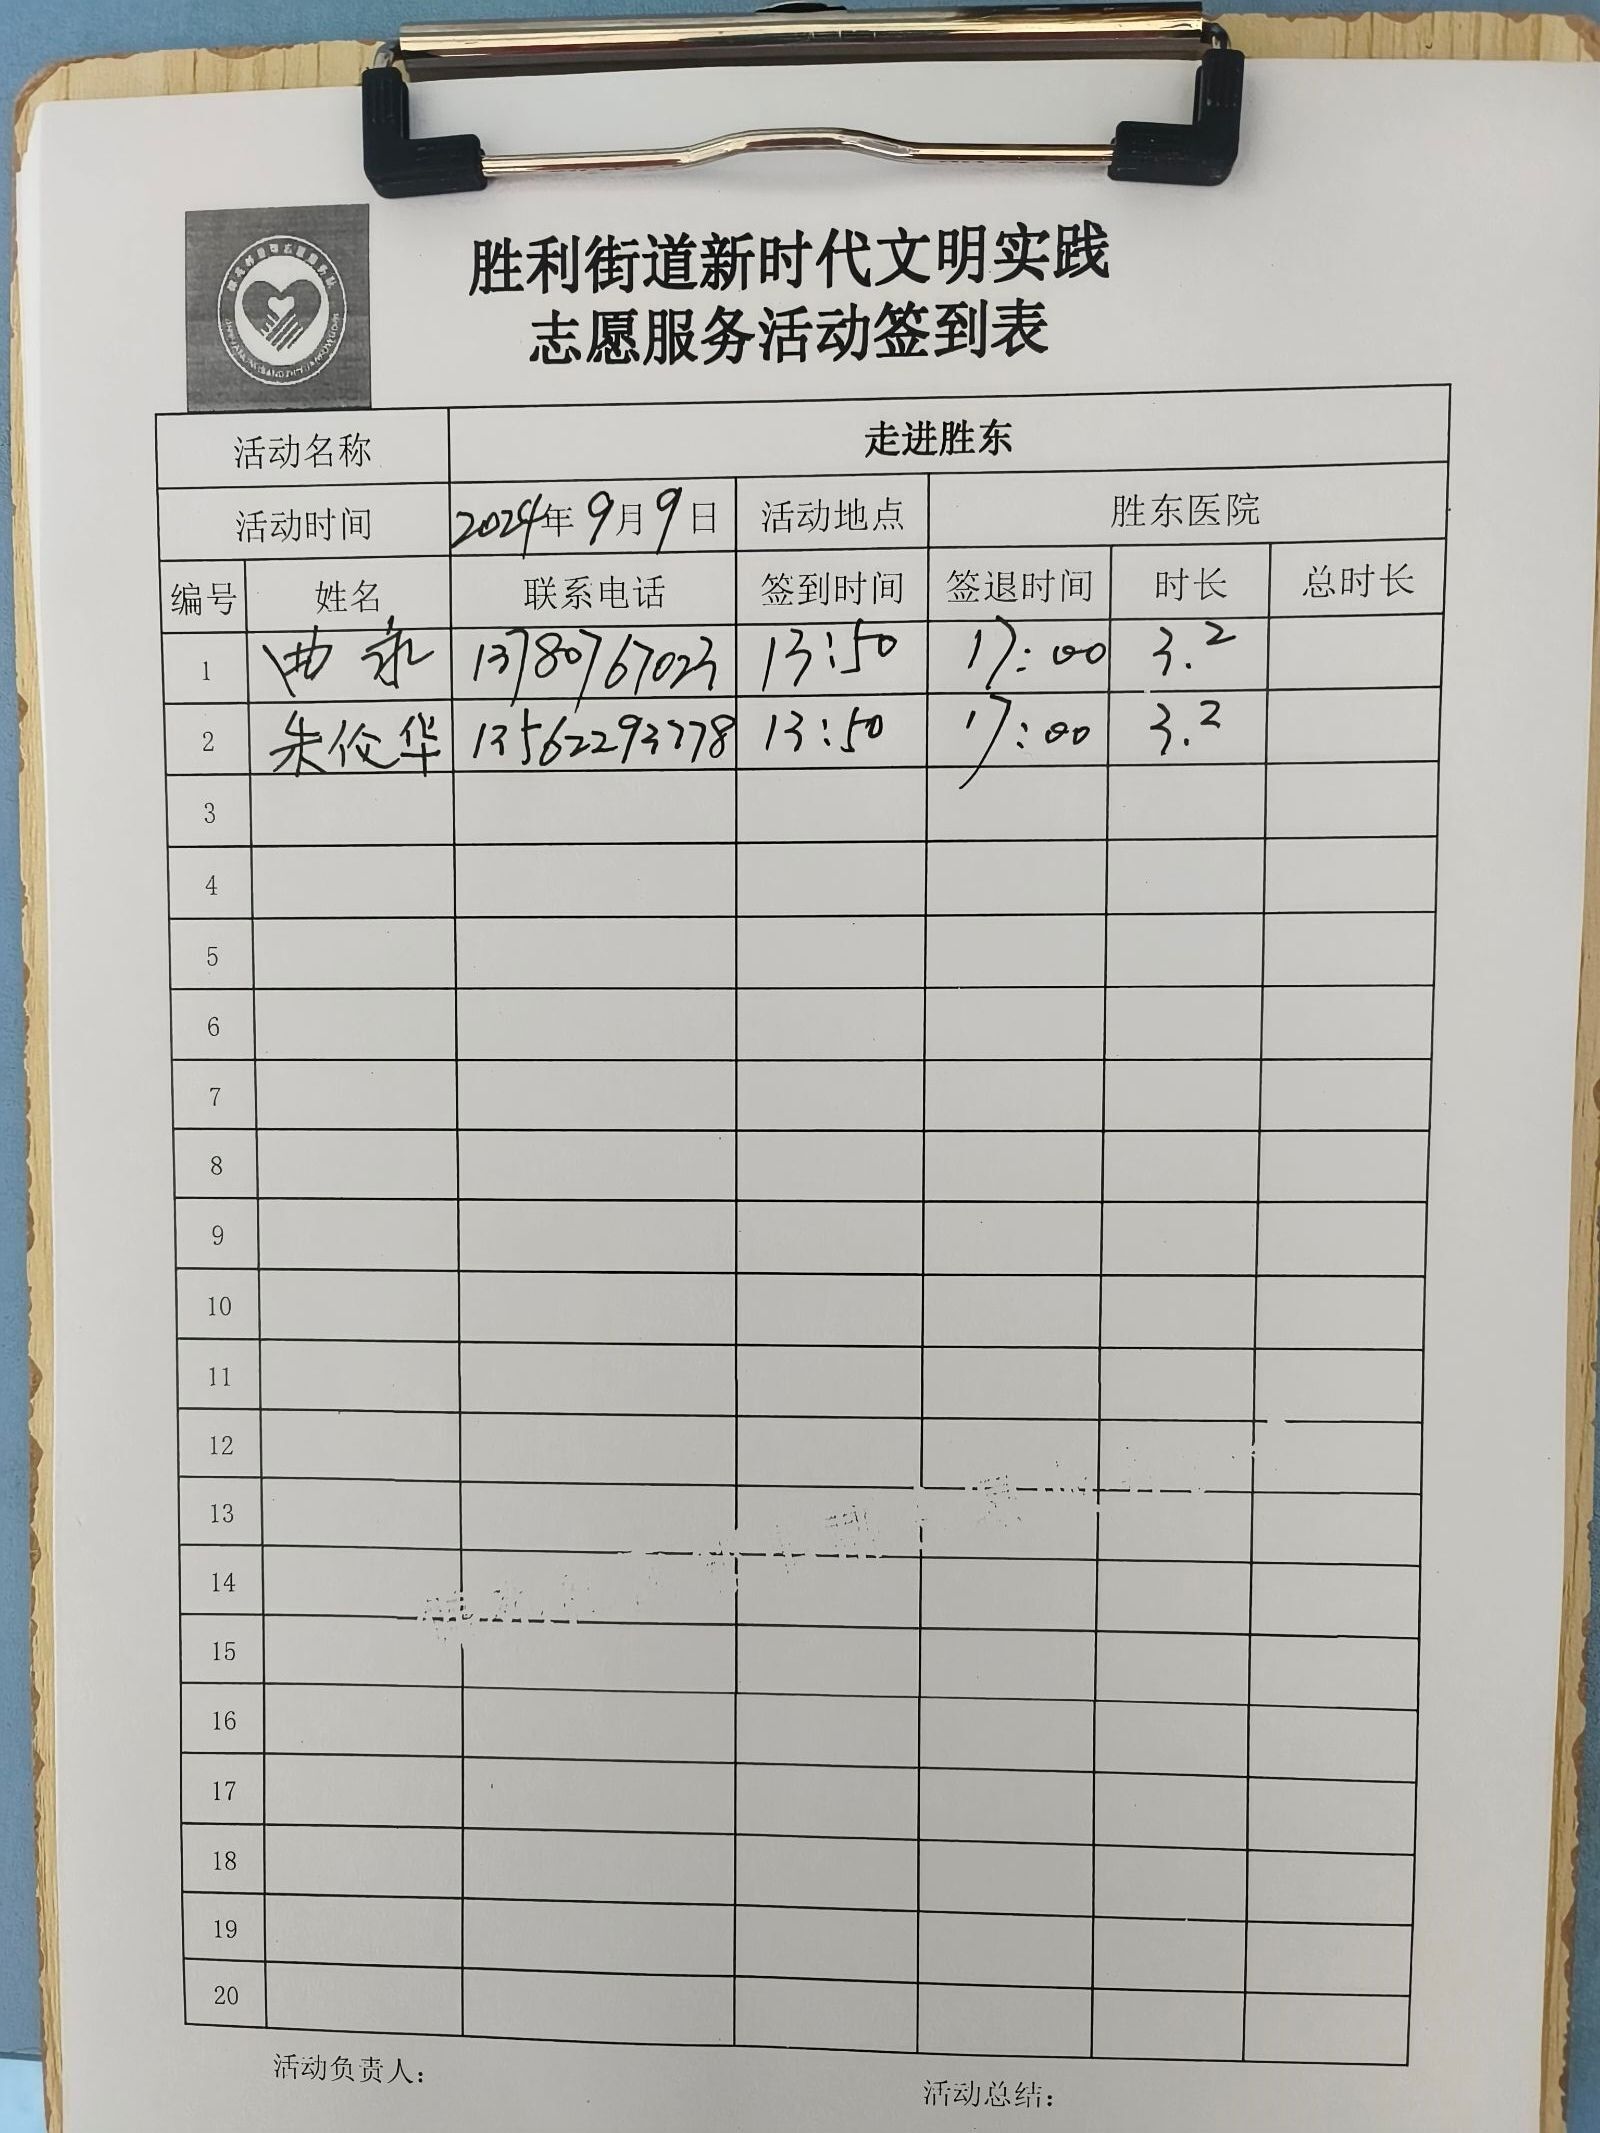 胜利街道新时代文明实践
志愿服务活动签到表
活动名称 走进胜东
活动时间 2024年9月9日 活动地点 胜东医院
编号 姓名 联系电话 签到时间 签退时间 时长 总时长
1 曲永 13780767023 13:50 17:00 3.2
2 朱俭华 13562293778 13:50 17:00 3.2
3
4
5
6
7
8
9
10
11
12
13
14
15
16
17
18
19
20
活动负责人：
活动总结：